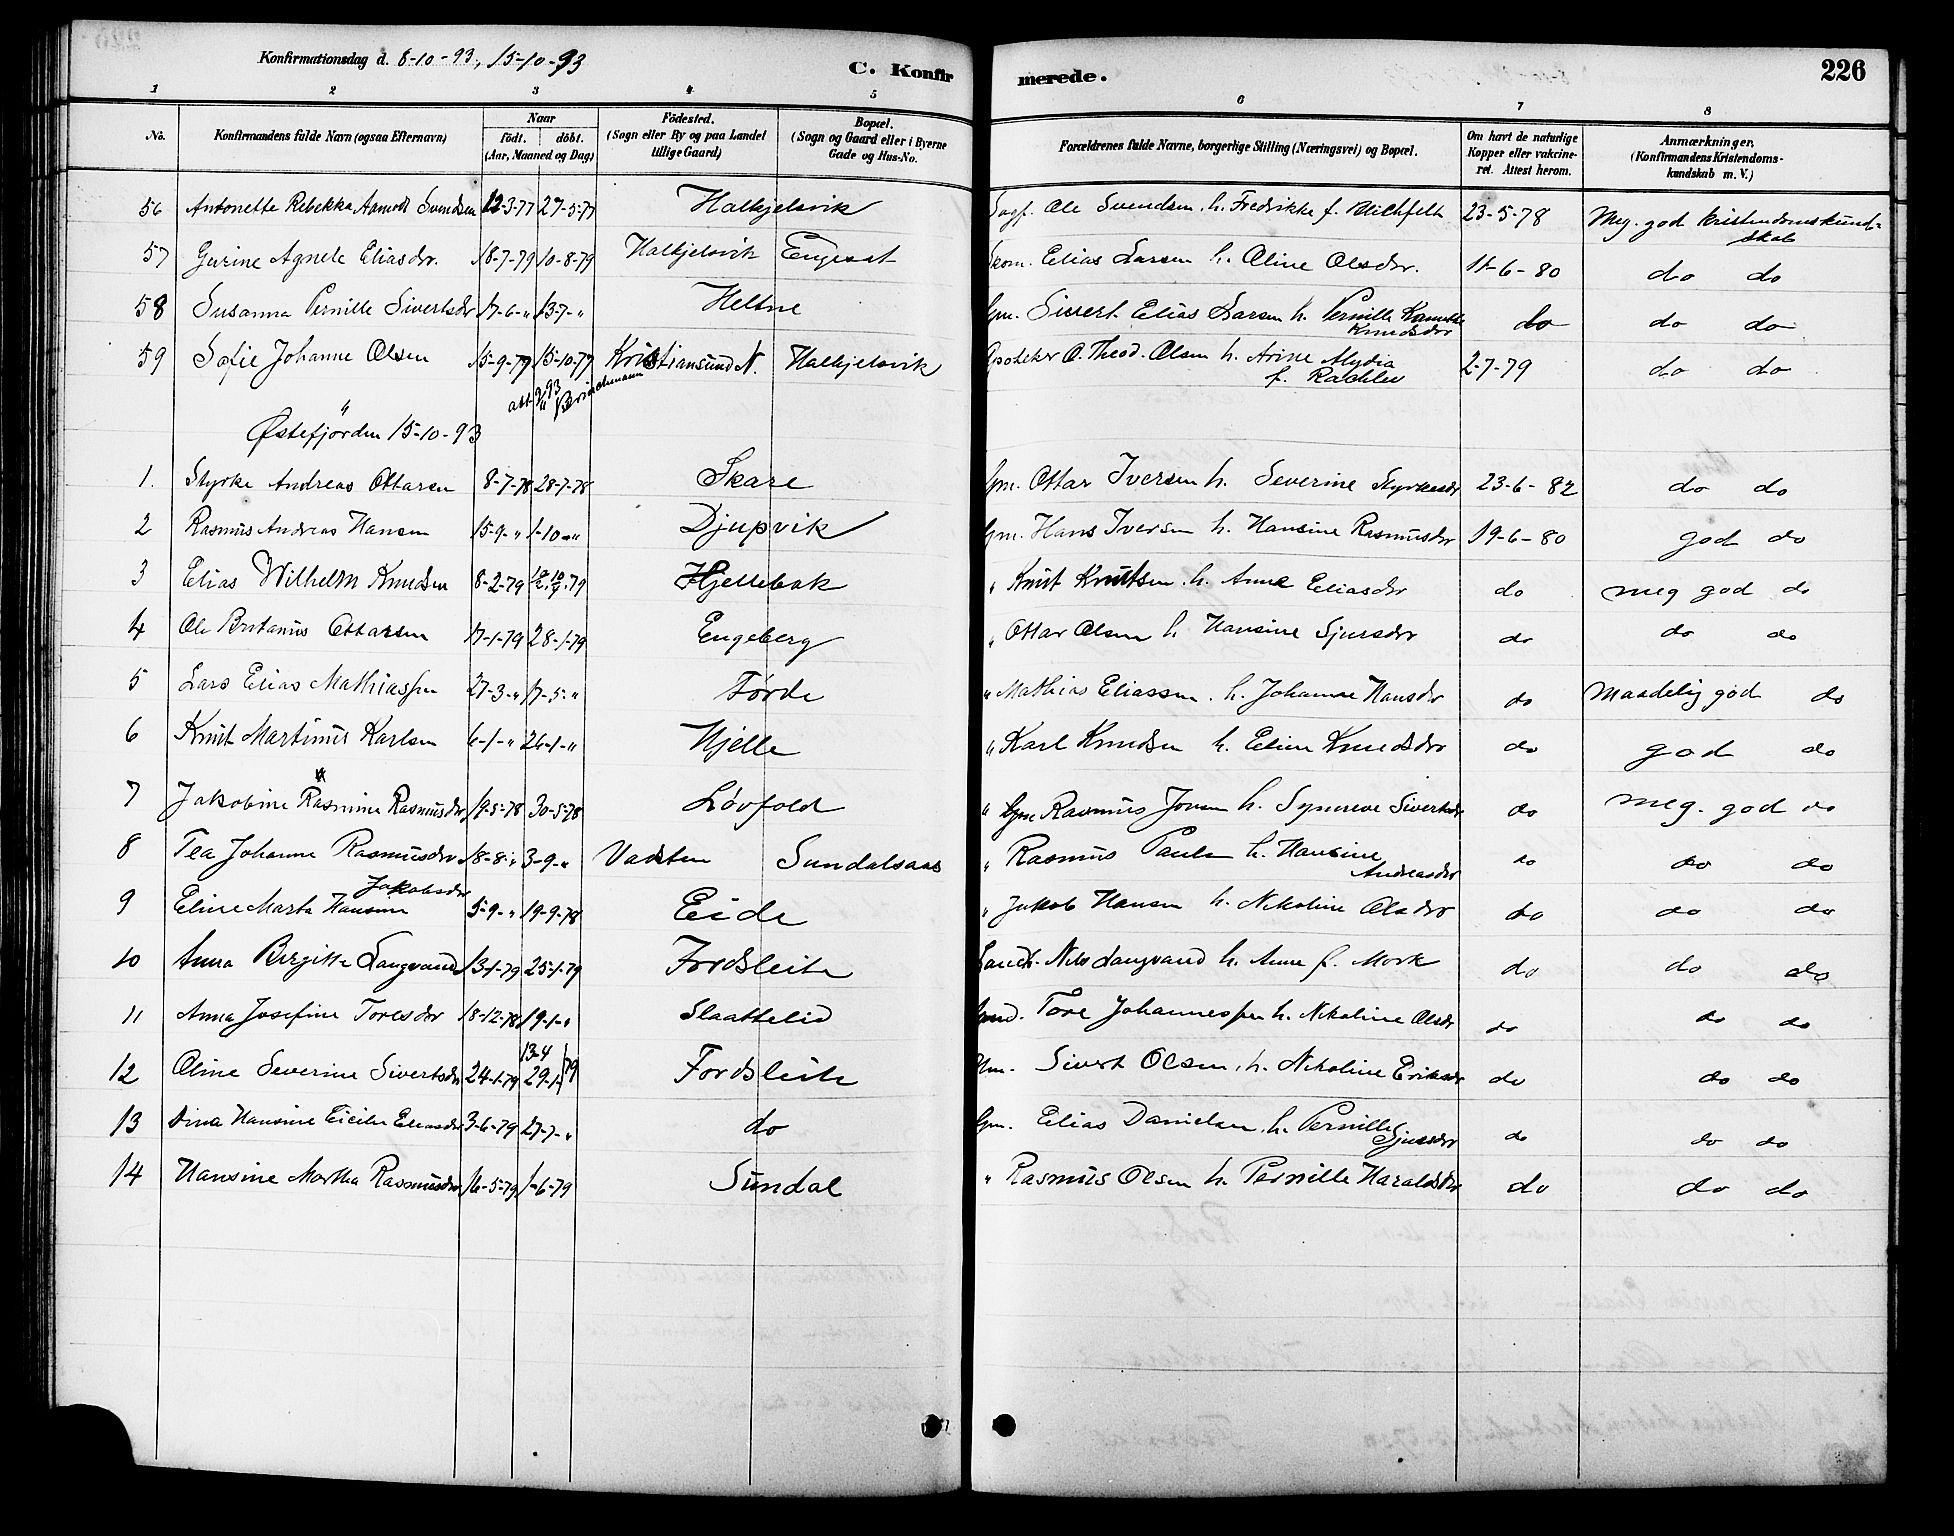 Konfirmationsdag d. 8-10-93, 15-10-93
C. Konfirmerede.
226
1 2 3 4 5 6 7 8
No. Konfirmandens fulde Navn (ogsaa Efternavn) Naar födt. döbt. (Aar, Maaned og Dag) Födested. (Sogn eller By og paa Landet tillige Gaard) Bopæl. (Sogn og Gaard eller i Byerne Gade og Hus-No. Forældrenes fulde Navne, borgerlige Stilling (Næringsvei) og Bopæl. Om havt de naturlige Kopper eller vakcineret. Attest herom. Anmærkninger, (Konfirmandens Kristendomskundskab m. V.)
56 Antonette Rebekka Svendsen 12-3-77 27-5-77 Halkjelsvik Ole Svendsen h. Fredrikke f. 23-5-78 Meg. god kristendomskundskab
57 Gurine Agnete Eliasdr. 18-7-79 10-8-79 Halkjelsvik Engeset Skom. Elias Larsen h. Oline Olsdr. 11-6-80 do do
58 Susanna Pernille Sivertsdr 17-6-" 13-7-" Heltne Gm. Sivert Elias Larsen h. Pernille Knudsdr do do do
59 Sofie Johanne Olsen 15-9-79 15-10-79 Kristiansund N. Halkjelsvik Apotheker O. Theod. Olsen h. Arine f. 2-7-79 do do
"
Østefjorden 15-10-93
1. Styrke Andreas Ottarsen 8-7-78 28-7-78 Skare Gm. Ottar Iversen h. Severine Styrkesdr 23-6-82 do do
2 Rasmus Andreas Hansen 15-9-" 1-10-" Djupvik Gm. Hans Iversen h. Hansine Rasmusdr 19-6-80 god do
3 Elias Wilhelm Knudsen 8-2-79 Hjellebak " Knut Knutsen h. Anne Eliasdr do meg god do
4 Ole Ottarsen 17-1-79 28-1-79 Engeberg " Ottar Olsen h. Hansine Sjursdr do do do
5 Lars Elias Mathiassen 27-3-" 17-5-" Førde " Mathias Eliassen h. Johanne Hansdr do Maadelig god do
6 Knut Martinus Karlsen 6-1-" 26-1-" Hjelle " Karl Knudsen h. Eline Knudsdr do god do
7 Jakobine Rasmine Rasmusdr 19-5-78 30-5-78 Løvfold " Gm Rasmus Jonsen h. Synneve Sivertsdr do meg. god do
8 Tea Johanne Rasmusdr 18-8-" 3-9-" Vadsten Sundalsaas " Rasmus Paulsen h. Hansine Andreasdr do do do
9 Eline Marta Hansine Jakobsdr 5-9-" 19-9-78 Eide " Jakob Hansen h. Nikoline Olsdr do do do
10 Anna Birgitte Langvand 13-1-79 25-1-79 Fordsleite Nils Langvand h. Anne f. Mork do do do
11 Anna Josefine Toresdr 18-12-78 19-1-" Slaattelid Tore Johannessen h. Nikoline Olsdr do do do
12 Oline Severine Sivertsdr 24-1-79 13-4 29-1-79 Fordsleite Gm. Sivert Olsen h. Nikoline Eriksdr do do do
13 Dina Hansine Eliasdr 3-6-79 27-7-" do Gm. Elias Danielsen h. Pernille Sjursdr do do do
14 Hansine Martha Rasmusdr 16-5-79 1-6-79 Sundal " Rasmus Olsen h. Pernille Haraldsdr do do do